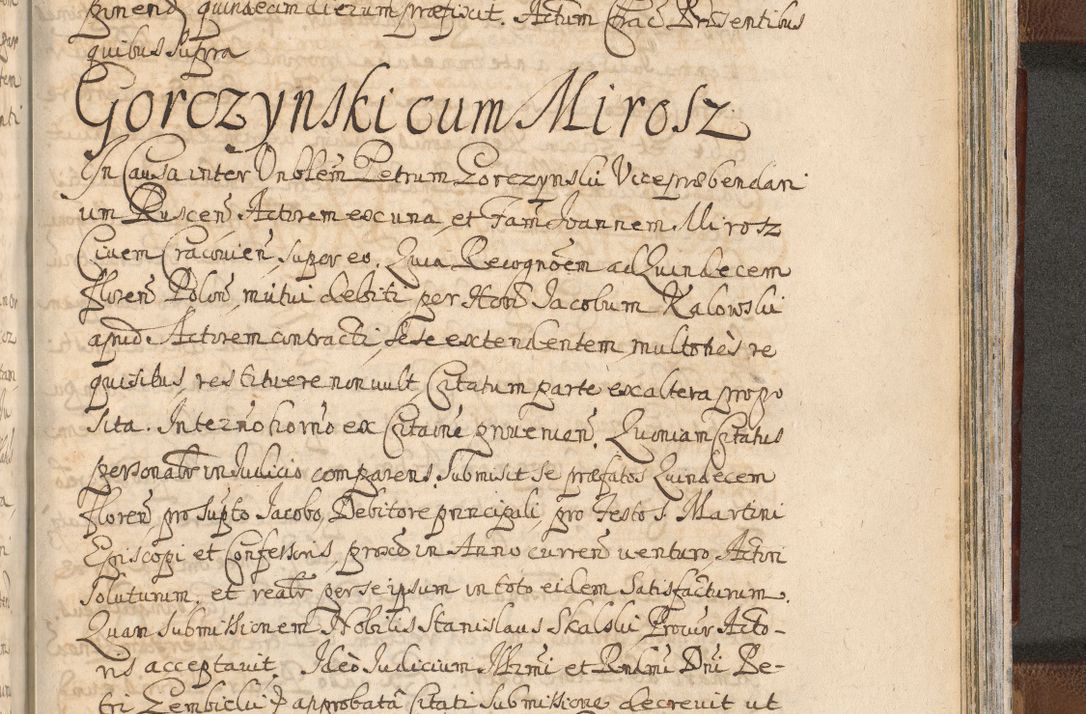 ginend quindecim dierum præfixit. Actum Crac Præsentibus
quibus supra
Gorczynski cum Mirosz
In Causa inter Vnblem Petrum Gorczynski Vicepræbendari
um Ruscen Actorem ex una, et Famm Joannem Mirosz
Civem Cracovien, super eo. Quia Recognoem ad Quindecem
floren Polon, mutui debiti per Hon Jacobum Kalowski
apud Actorem contracti, se se extendentem, multoties re
quisitus, restituere non vult, Citatum parte ex altera propo
sita. In termo horno ex Citaine provenien. Quoniam Citatus
personalr in Judicio comparens. Submisit se præfatos Quindecem
floren pro supto Jacobo, Debitore principali, pro Festo S Martini
Episcopi et Confessoris, prox in Anno curren venturo, Actori
soluturum, et realr per se ipsum in toto eidem Satisfacturum.
Quam submissionem Nobilis Stanislaus Skalski Procur Acto-
ris acceptavit. Ideò Judicium Illrmi et Rndmi Dni Pe-
tri Gembicki D approbatâ Citati submissione decrevit ut